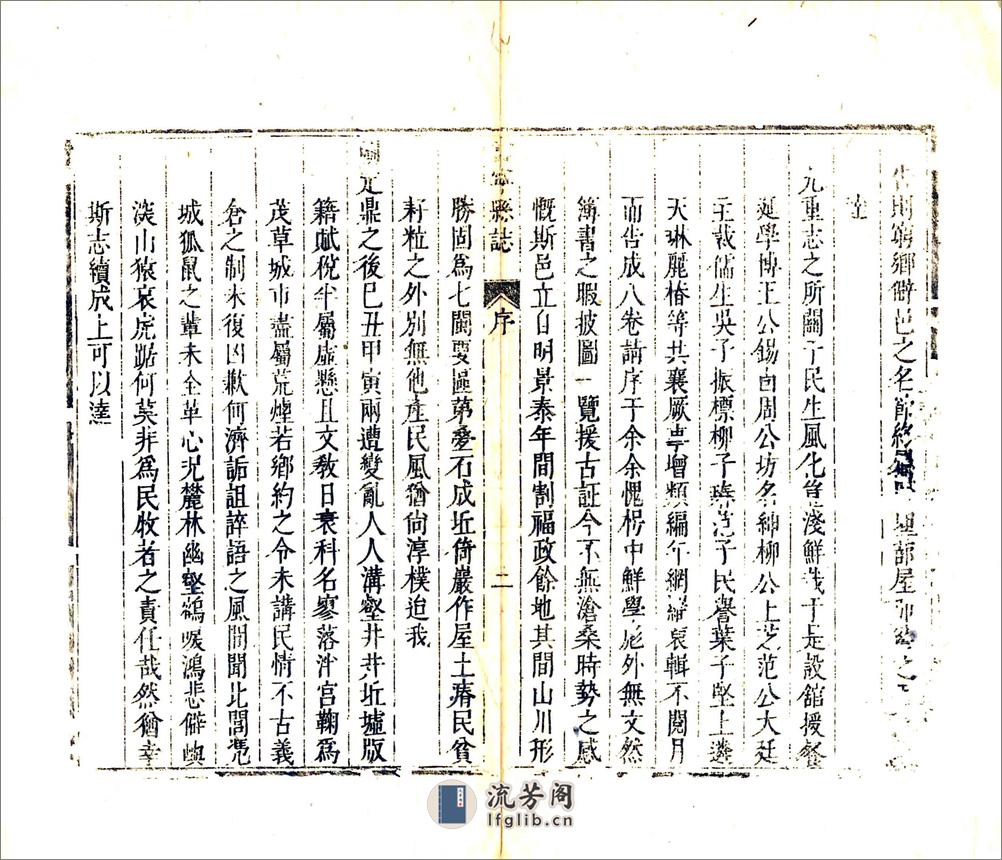 告則窮鄉僻邑之名節終
達
九重志之所關于民生風化豈淺鮮哉于是設舘援餐
延學博王公錫卣周公坊名紳柳公上芝范公大廷
王載儒生吳子振標柳子 范子民譽葉子堅上遴
天琳麗椿等共襄厥事增類編年網 裒輯不閱月
而告成八卷請序于余余愧枵中鮮學 外無文然
簿書之暇披圖一覽援古証今不無滄桑時勢之感
慨斯邑立自明景泰年間割福政餘地其間山川形
壽寧縣誌 序 二
勝固爲七閩要區第壘石成坵倚巖作屋土瘠民貧
籽粒之外別無他產民風猶尙淳樸迫我
朝定鼎之後巳丑甲寅兩遭變亂人人溝壑井井坵墟版
籍賦稅半屬虛懸且文敎日衰科名寥落泮宫鞠爲
茂草城市盡屬荒煙若鄉約之令未講民情不古義
倉之制未復凶歉何濟詬詛誶語之風間聞比閭憑
城狐鼠之輩未全革心况麓林幽壑鴉 鴻悲僻嶼
淡山猿哀虎踞何莫非爲民牧者之責任哉然猶幸
斯志續成上可以達
流芳阁
lfglib.cn